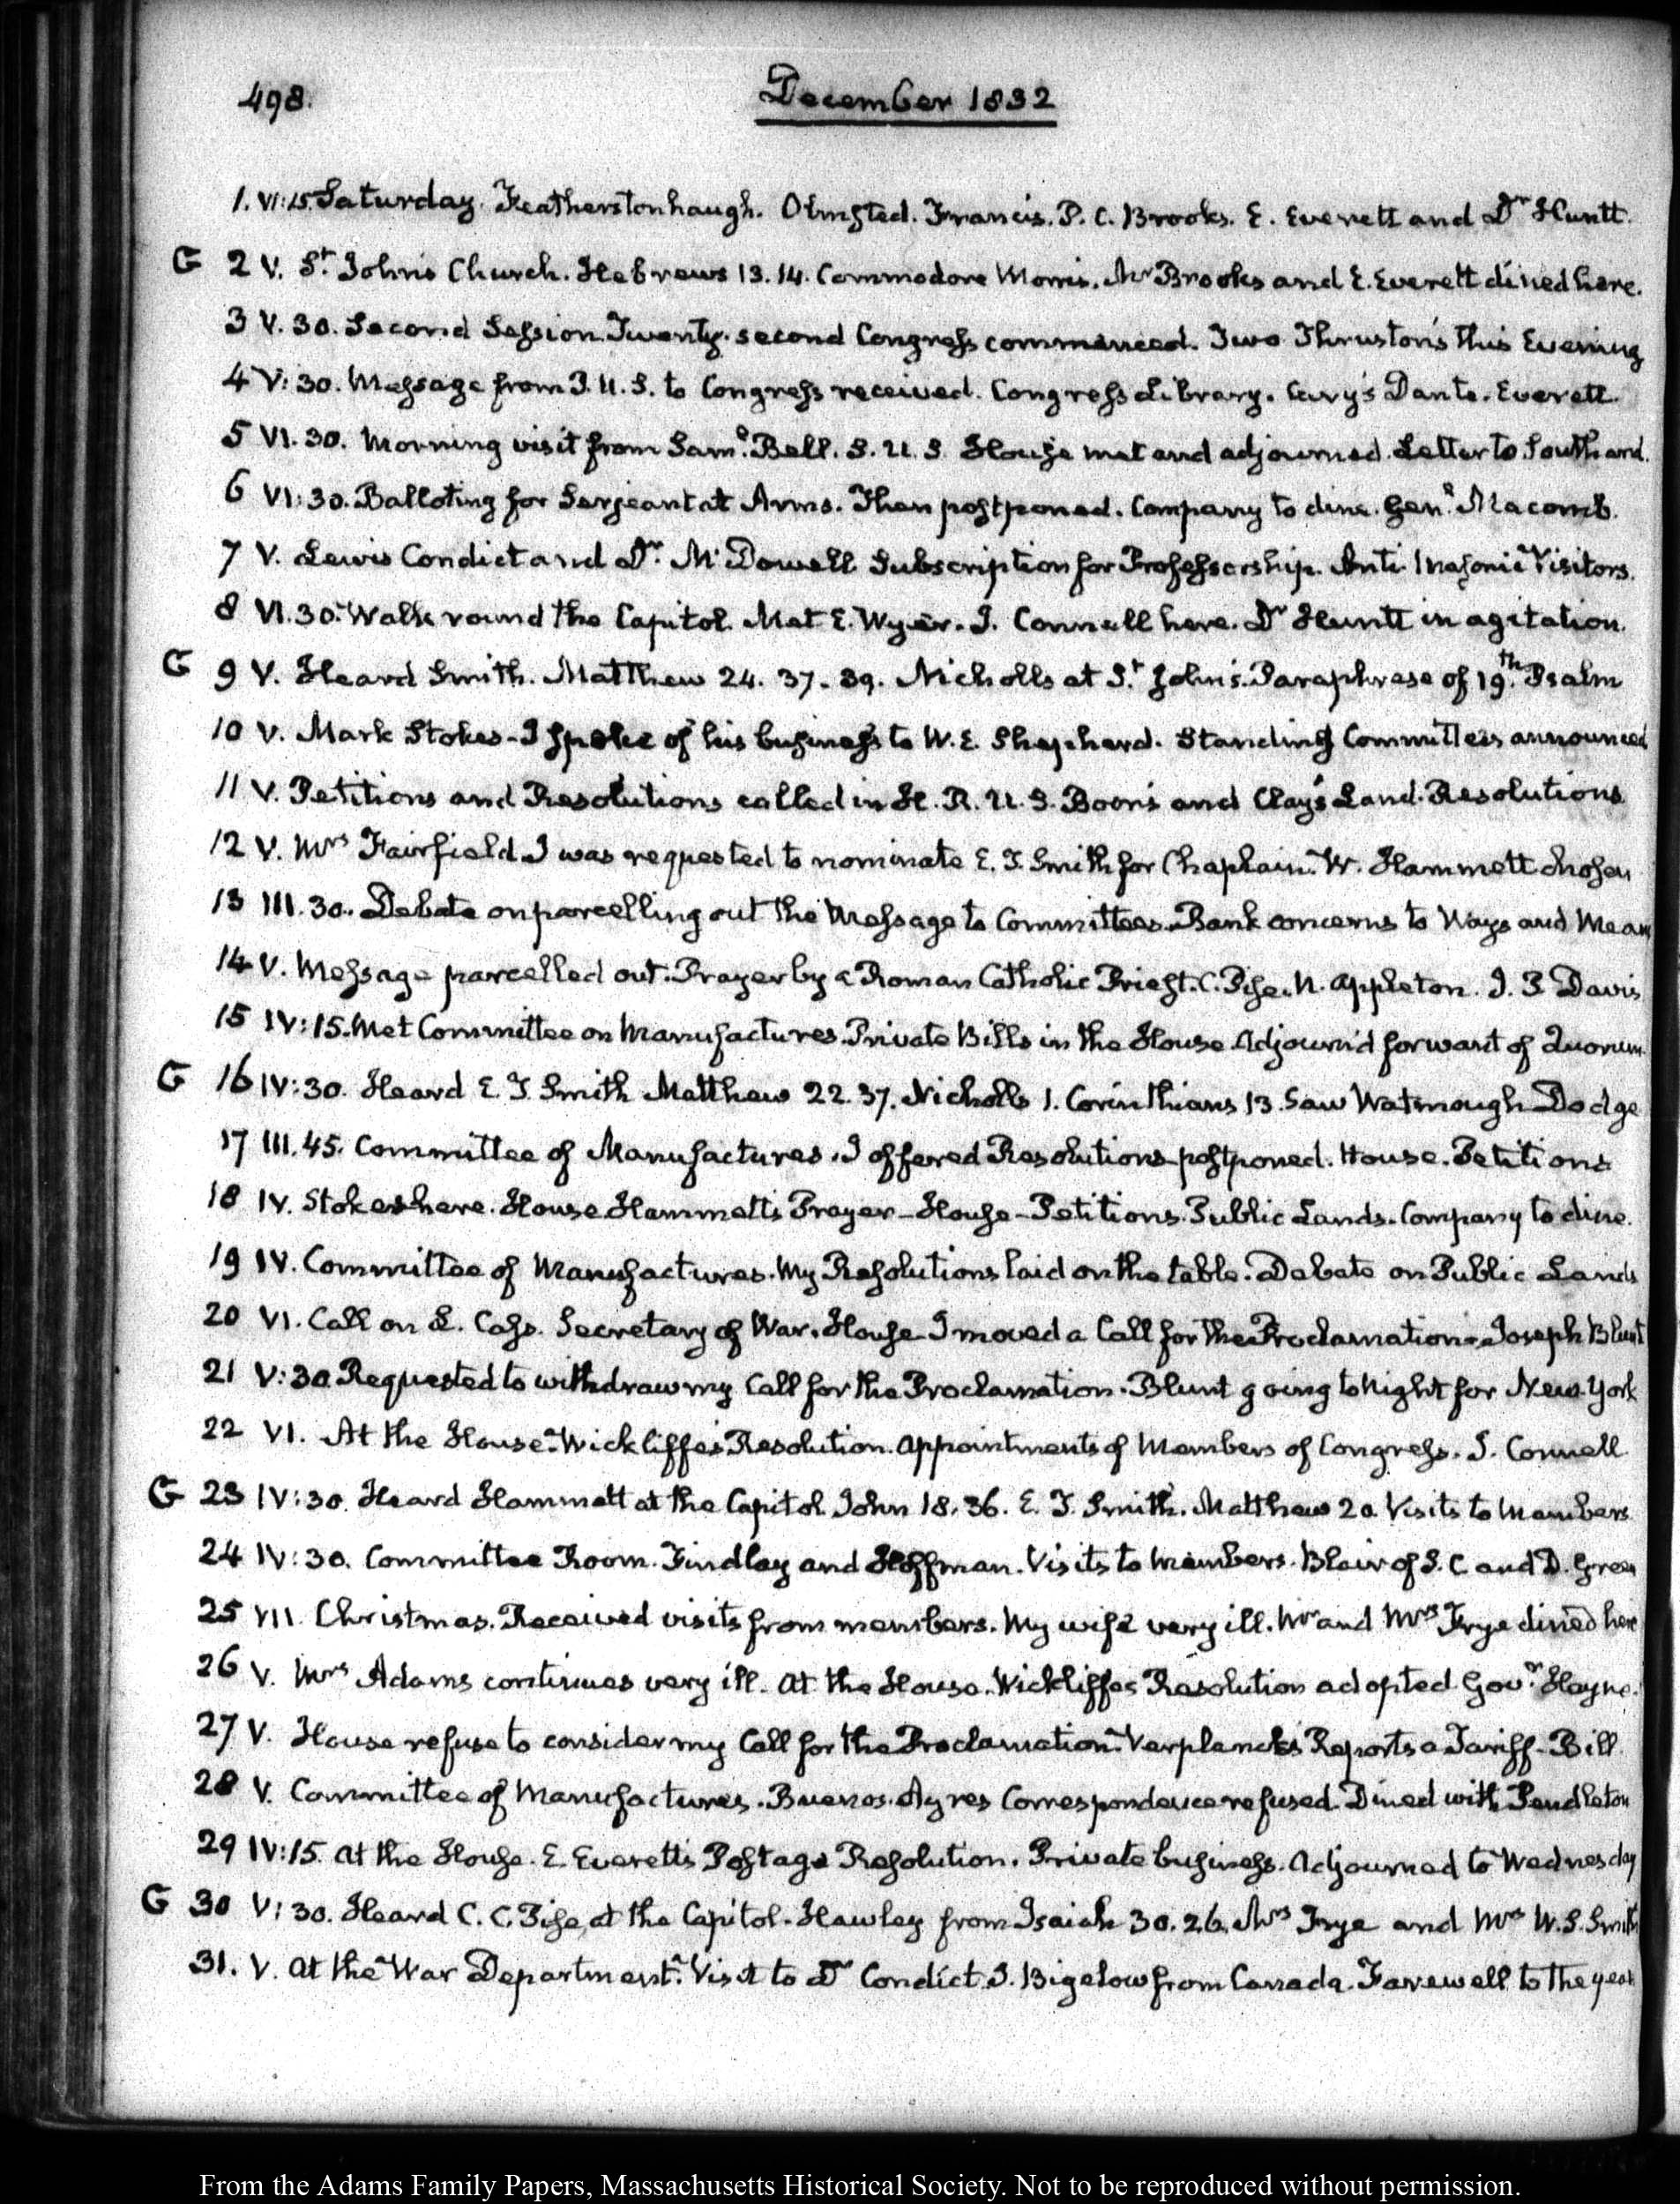 498.
December 1832
1. VI:15. Saturday. Featherstonhaugh. Olmsted. Francis. P. C. Brooks. E. Everett and Dr Huntt.
G 2 V. St Johns Church. Hebrews 13. 14. Commodore Morris. Mr Brooks and E. Everett dined here.
3 V. 30. Second Session Twenty-second Congress commenced. Two Thruston's this Evening
4 V:30. Message from P. U. S. to Congress received. Congress Library. Cary's Dante. Everett.
5 VI. 30. Morning visit from Saml Bell. S. U. S. House met and adjourned. Letter to Southard.
6 VI:30. Balloting for Serjeant at Arms. Then postponed. Company to dine. Genl Macomb.
7 V. Lewis Condict and Dr McDowell Subscription for Professorship. Anti Masonic Visitors.
8 VI. 30. Walk round the Capitol. Met E. Wyer. J. Connell here. Dr Huntt in agitation.
G 9 V. Heard Smith. Matthew 24. 37-39. Nicholls at St John's. Paraphrase of 19th Psalm
10 V. Mark Stokes - I spoke of his business to W. E. Shepherd. Standing Committees announced
11 V. Petitions and Resolutions called in H. R. U. S. Boon's and Clay's Land Resolutions
12 V. Mrs Fairfield. I was requested to nominate E. J. Smith for Chaplain. W. Hammett chosen
13 III. 30. Debate on parcelling out the Message to Committees. Bank concerns to Ways and Mean
14 V. Message parcelled out. Prayer by a Roman Catholic Priest. C. Pise. N. Appleton. J. P. Davis
15 IV:15. Met Committee on Manufactures. Private Bills in the House. Adjourn'd for want of Quorum.
G 16 IV:30. Heard E. J. Smith Matthew 22. 37. Nicholls 1. Corinthians 13. Saw Watmough Dodge
17 III. 45. Committee of Manufactures. I offered Resolutions postponed. House. Petitions
18 IV. Stokes here. House Hammetts Prayer - House - Petitions. Public Lands. Company to dine.
19 IV. Committee of Manufactures. My Resolutions laid on the table. Debate on Public Lands
20 VI. Call on L. Cass. Secretary of War. House I moved a Call for the Proclamation. Joseph Blunt
21 V:30. Requested to withdraw my Call for the Proclamation. Blunt going to night for New-York
22 VI. At the House. Wickliffe's Resolution. Appointments of Members of Congress. J. Connell
G 23 IV:30. Heard Hammett at the Capitol John 18. 36. E. J. Smith. Matthew 20. Visits to Members
24 IV:30. Committee Room. Findlay and Hoffman. Visits to Members. Blair of S. C. and D. Green
25 VII. Christmas. Received visits from members. My wife very ill. Mr and Mrs Frye dined here
26 V. Mrs Adams continues very ill. At the House. Wickliffes Resolution adopted. Govr Hayne.
27 V. House refuse to consider my Call for the Proclamation. Verplanck's Reports a Tariff-Bill.
28 V. Committee of Manufactures. Buenos-Ayres Correspondence refused. Dined with Pendleton
29 IV:15. At the House. E. Everett's Postage Resolution. Private business. Adjourned to Wednesday
G 30 V:30. Heard C. C. Pise, at the Capitol. Hawley from Isaiah 30. 26. Mrs Frye and Mrs W. S. Smith
31. V. At the War Department. Visit to Dr Condict. J. Bigelow from Canada. Farewell to the year
From the Adams Family Papers, Massachusetts Historical Society. Not to be reproduced without permission.